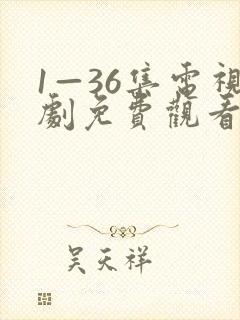 1—36集電視
劇免費觀看
吴天祥